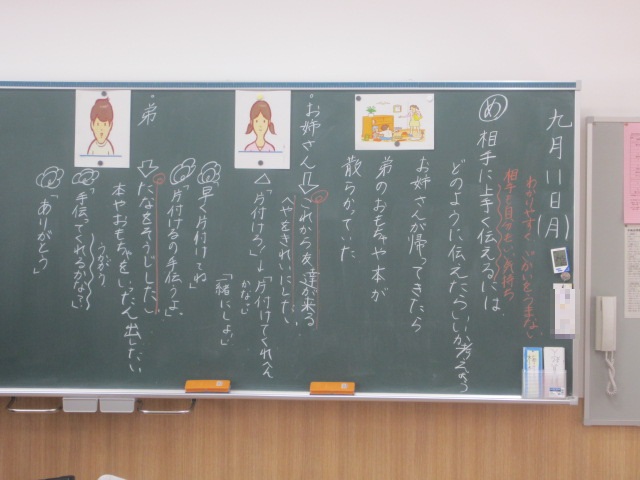 九月十一日(月)
わかりやすく
相手も自分もいい気持ち
め 相手に上手く伝えるには
どのように伝えたらいいか考えよう
お姉さんが帰ってきたら
弟のおもちゃや本が
散らかっていた
・お姉さん
これから友達が来る
へやをきれいにしたい
△「片付けろ!」→「片付けてくれる
かな」
「一緒にしよ」
「早く片付けてね」
「片付けるの手伝うよ」
・弟
たなをそうじしたい
本やおもちゃをいったん出したい
「手伝ってくれるかな?」
「ありがとう」